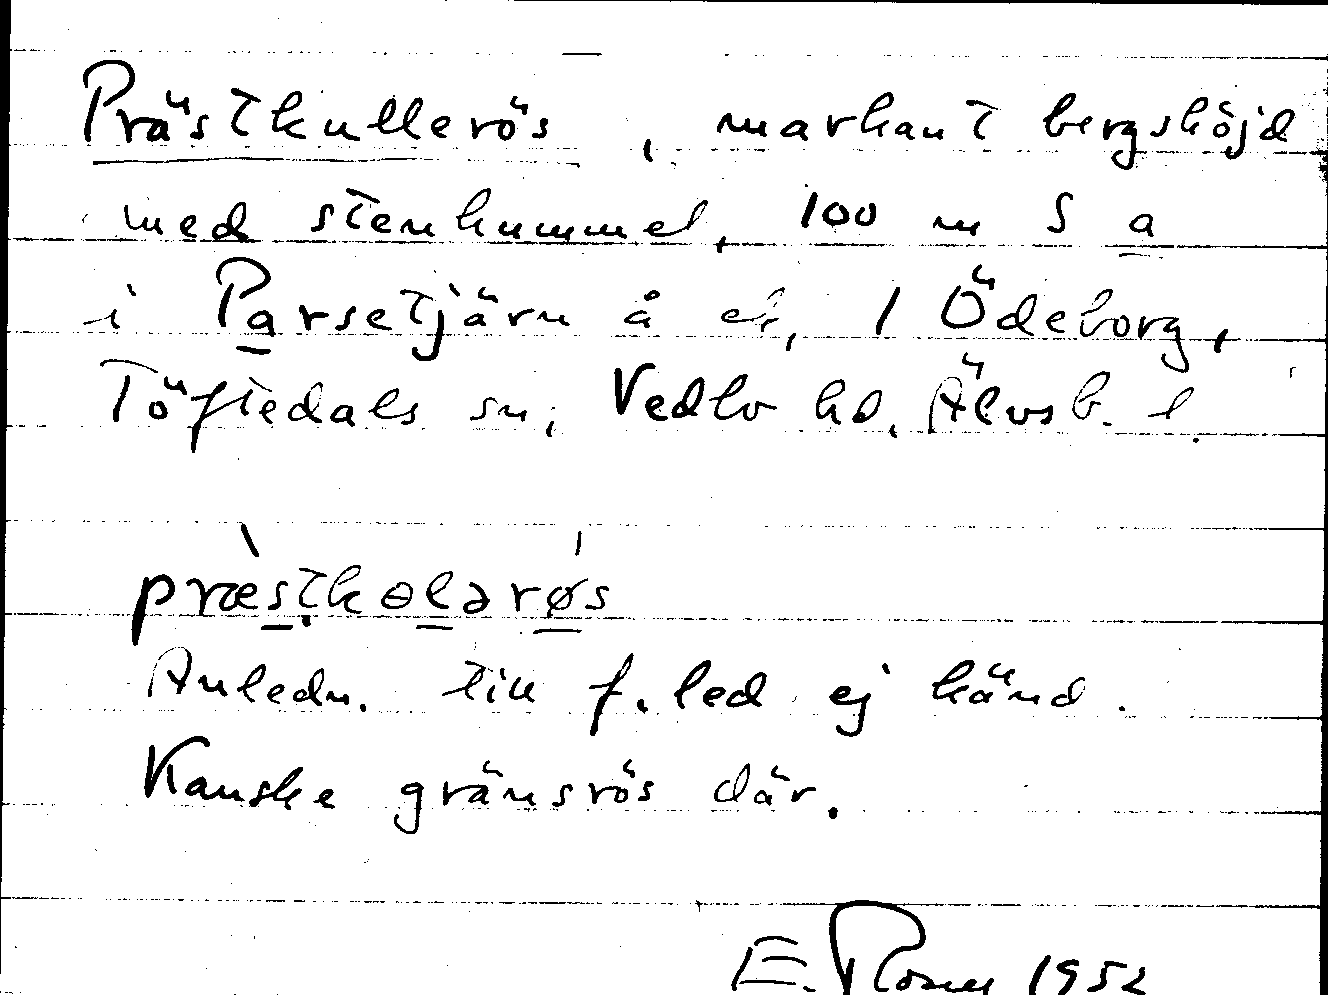 Prästkullerös, markant bergshöjd
med stenkummel, 100 m S a
i Parsetjärn å ek, 1 Ödeborg,
Töftedals sn, Vedbo hd, Älvsb. l.
præstkɵlərøs
Anledn. till f. led ej känd.
Kanske gränsrös där.
E. 1952